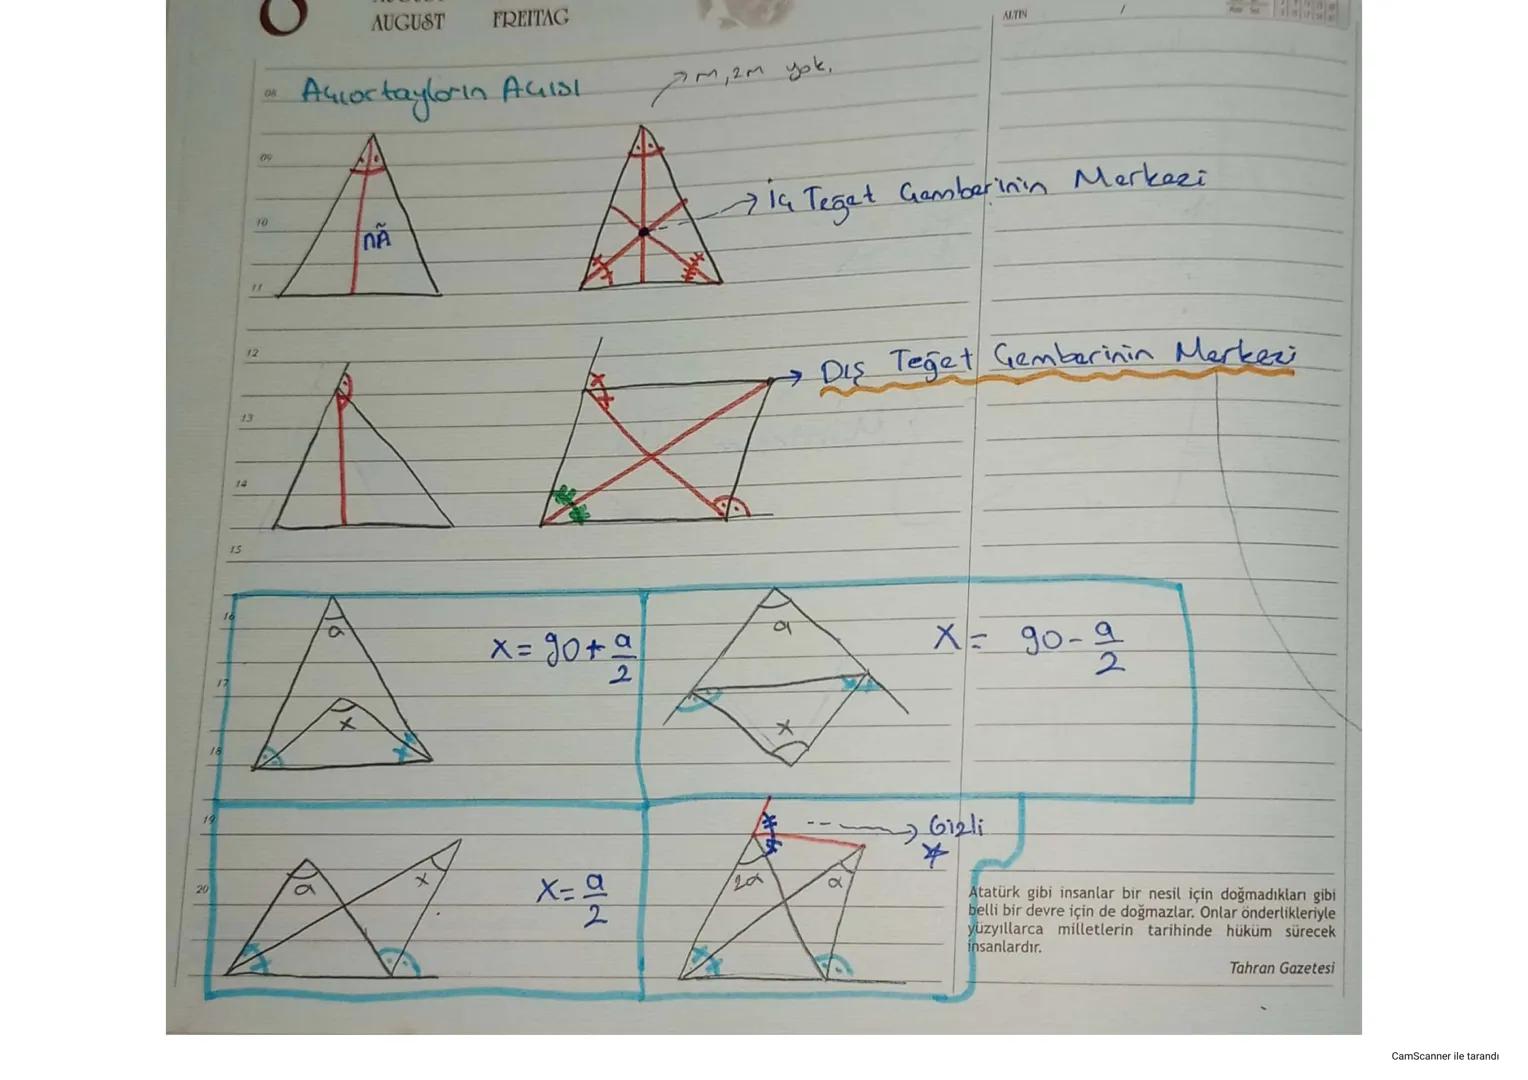 AUGUST FREITAG
ALTIN
08 Açıortayların Açısı
m, 2m yok.
09
10
nA
İç Teğet Çemberinin Merkezi
11
12
Dış Teğet Çemberinin Merkezi
13
14
15
16
a
x = 90 + a/2
a
x = 90 - a/2
17
x
x
18
19
Gizli
20
a
x
x = a/2
2α
α
Atatürk gibi insanlar bir nesil için doğmadıkları gibi
belli bir devre için de doğmazlar. Onlar önderlikleriyle
yüzyıllarca milletlerin tarihinde hüküm sürecek
insanlardır.
Tahran Gazetesi
CamScanner ile tarandı